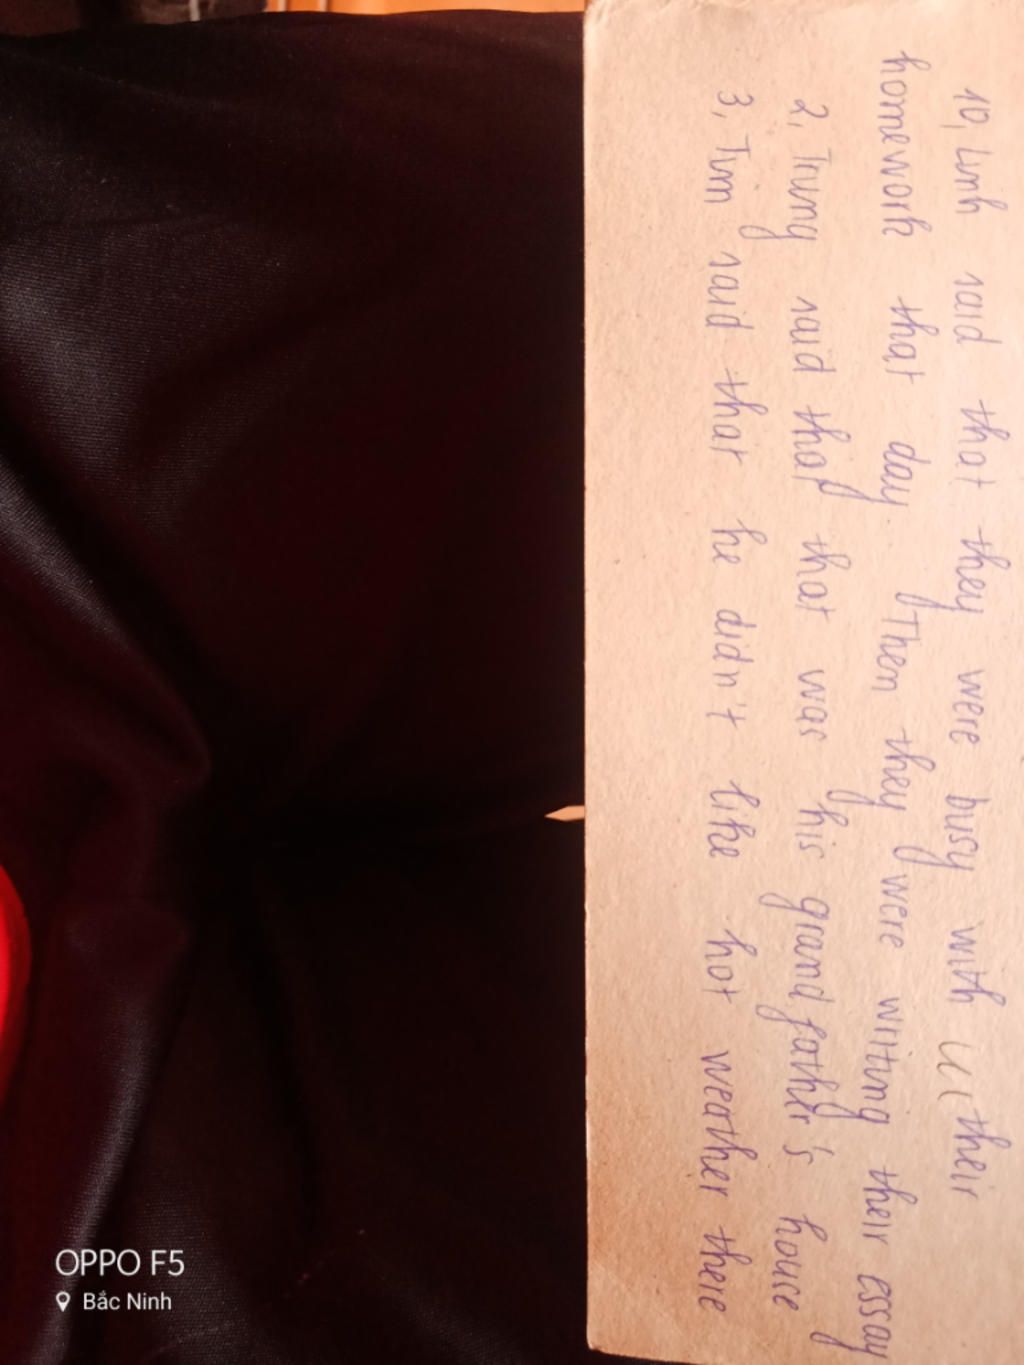 10, Linh said that they were busy with their
homework that day. Then they were writing their essay
2, Trung said that that was his grandfather's house
3, Tim said that he didn't like hot weather there
OPPO F5
Bắc Ninh